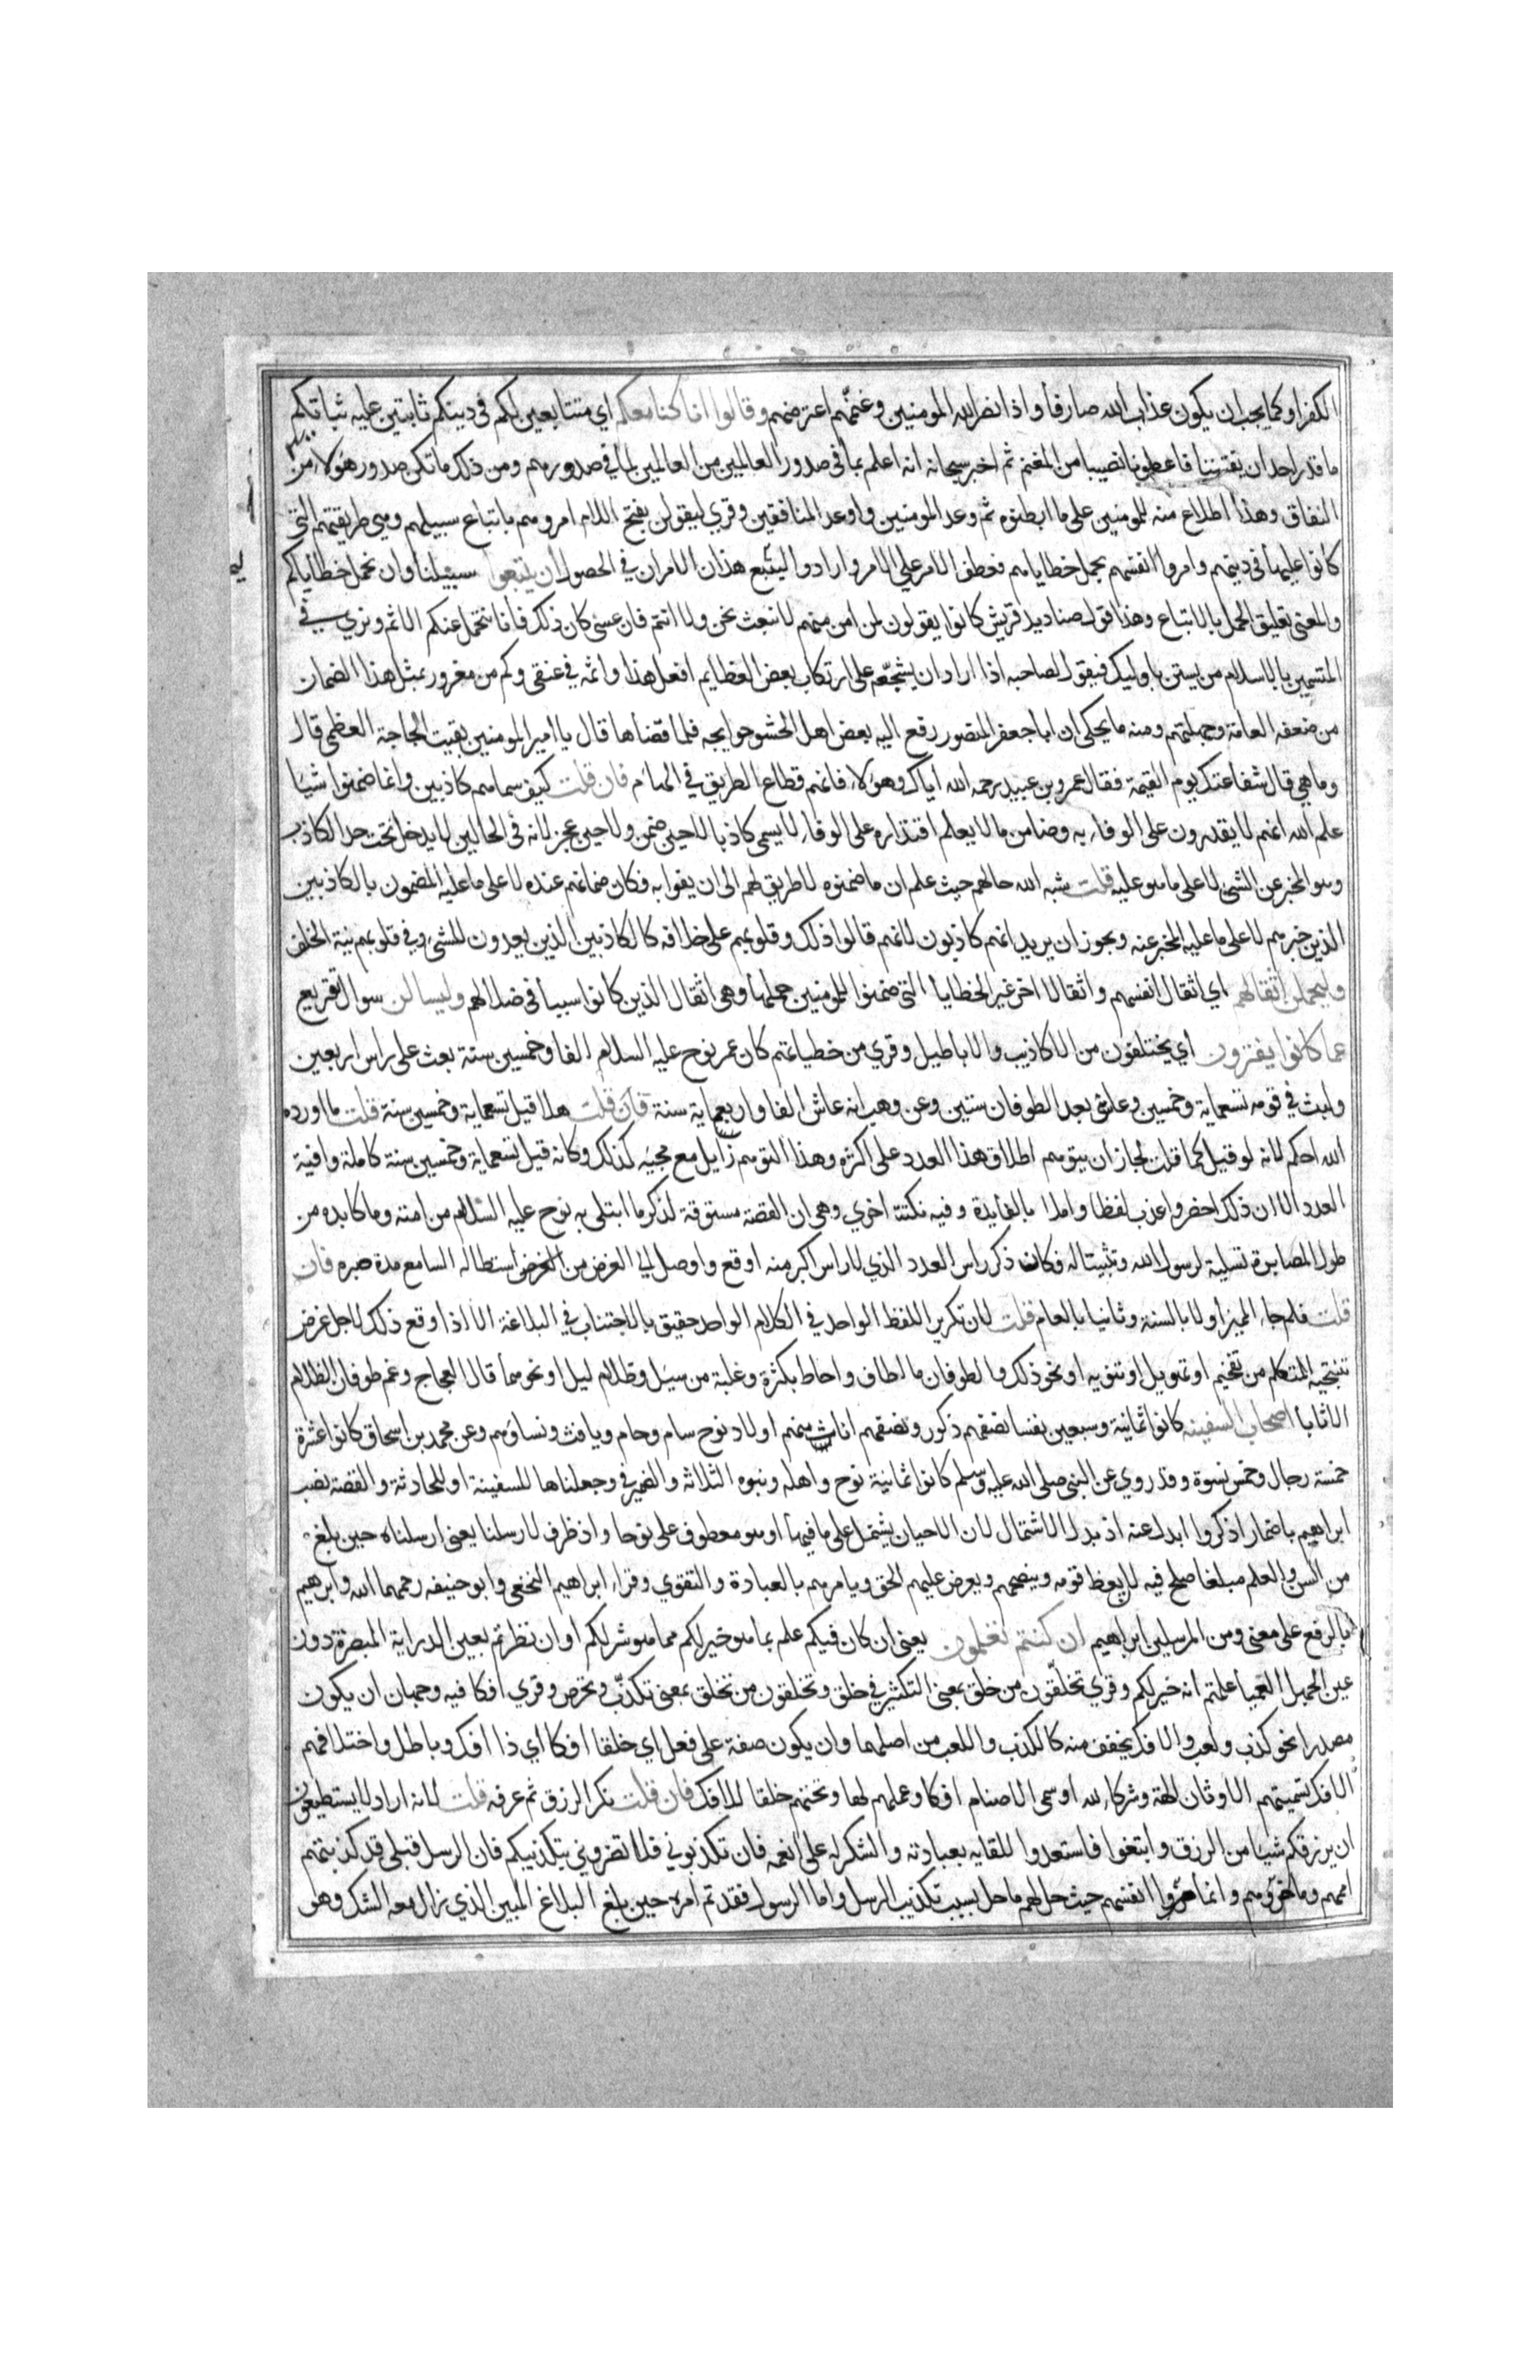 الكفر او كما يجب ان يكون عذاب الله صارفا واذا نصر الله المومنين وغنمهم اعترضهم وقالوا انا كنا معكم اي متتابعين لكم في دينكم ثابتين عليه ثباتكم
ما قدر احد ان يفتننا فاعطونا نصيبا من المغنم ثم اخبر سبحانه انه اعلم بما في صدور العالمين من العالمين بما في صدورهم ومن ذلك ما تكن صدور هولاء من
النفاق وهذا اطلاع منه للمومنين على ما ابطنوه ثم وعد المومنين واوعد المنافقين وقري ليقولن بفتح اللام امروهم باتباع سبيلهم وهي طريقتهم التي
كانوا عليها في دينهم وامروا انفسهم بحمل خطاياهم فعطف الامر علي الامر وارادوا ليتبع هذان الامران في الحصول ان يتبعوا سبيلنا وان نحمل خطاياكم
والمعنى تعليق الحمل بالاتباع وهذا قول صناديد قريش كانوا يقولون لمن امن منهم لا نبعث نحن ولا انتم فان عسى كان ذلك فانا نتحمل عنكم الاثم ونري في
المتسمين بالاسلام من يستن باوليك فيقول لصاحبه اذا اراد ان يشجعه على ارتكاب بعض العظايم افعل هذا واثمه في عنقي وكم من مغرور بمثل هذا الضمان
من ضعفة العامة وجهلتهم ومنه ما يحكى ان ابا جعفر المنصور رفع اليه بعض اهل الحشو حوايجه فلما قضاها قال يا امير المومنين بقيت الحاجة العظمى قال
وما هي قال شفاعتك يوم القيمة فقال عمرو بن عبيد رحمه الله اياك وهولاء فانهم قطاع الطريق في المامن فان قلت كيف سماهم كاذبين وانما ضمنوا شيا
علم الله انهم لا يقدرون على الوفاء به وضامن ما لا يعلم اقتداره على الوفاء لا يسمى كاذبا لا حين ضمن ولا حين عجز لانه في الحالين لا يدخل تحت حد الكاذب
وهو المخبر عن الشي لا على ما هو عليه قلت شبه الله حالهم حيث علم ان ما ضمنوه لا طريق لهم الى ان يفوا به فكان ضمانهم عنده لا على ما عليه المضمون بالكاذبين
الذين خبرهم لا على ما عليه المخبر عنه ويجوز ان يريد انهم كاذبون لانهم قالوا ذلك وقلوبهم على خلافه كالكاذبين الذين يعدون للشي وفي قلوبهم نية الخلف
وليحملن اثقالهم اي اثقال انفسهم واثقالا اخر غير الخطايا التي ضمنوا للمومنين حملها وهي اثقال الذين كانوا سببا في ضلالهم وليسالن سوال تقريع
عما كانوا يفترون اي يختلقون من الاكاذيب والاباطيل وقري من خطياتهم كان عمر نوح عليه السلام الفا وخمسين سنة بعث على راس اربعين
ولبث في قومه تسعماية وخمسين وعاش بعد الطوفان ستين وعن وهب انه عاش الفا واربعماية سنة فان قلت هلا قيل تسعماية وخمسين سنة قلت ما اورده
الله احكم لانه لو قيل كما قلت لجاز ان يتوهم اطلاق هذا العدد على اكثره وهذا التوهم زايل مع مجيه كذلك وكانه قيل تسعماية وخمسين سنة كاملة وافية
العدد الا ان ذلك اخصر واعذب لفظا واملا بالفايدة وفيه نكتة اخري وهي ان القصة مسوقة لذكر ما ابتلى به نوح عليه السلام من امته وما كابده من
طول المصابرة تسلية لرسول الله وتثبيتا له فكان ذكر راس العدد الذي لا راس اكبر منه اوقع واوصل الي الغرض من الغرض استطالة السامع مدة صبره فان
قلت فلم جاء المميز اولا بالسنة وثانيا بالعام قلت لان تكرير اللفظ الواحد في الكلام الواحد حقيق بالاجتناب في البلاغة الا اذا وقع ذلك لاجل غرض
ينتحيه المتكلم من تفخيم او تهويل او تنويه او نحو ذلك والطوفان ما اطاف واحاط بكثرة وغلبة من سيل وظلام ليل او نحوهما قال العجاج وغم طوفان الظلام
الاثابا اصحاب السفينة كانوا ثمانية وسبعين نفسا نصفهم ذكور ونصفهم اناث منهم اولاد نوح سام وحام ويافث ونساوهم وعن محمد بن اسحاق كانوا عشرة
خمسة رجال وخمس نسوة وقد روي عن النبي صلى الله عليه وسلم كانوا ثمانية نوح واهله وبنوه الثلاثه والضمير في وجعلناها للسفينة او للحادثة والقصة نصب
ابراهيم باضمار اذكروا ابدل عنه اذ بدل الاشتمال لان الاحيان يشتمل على ما فيها او هو معطوف على نوحا واذ ظرف لارسلنا يعني ارسلناه حين بلغ
من السن والعلم مبلغا صلح فيه لان يعظ قومه وينصحهم ويعرض عليهم الحق ويامرهم بالعبادة والتقوي وقراء ابراهيم النخعي وابو حنيفه رحمهما الله وابرهيم
بالرفع على معنى ومن المرسلين ابراهيم ان كنتم تعلمون يعني ان كان فيكم علم بما هو خير لكم مما هو شر لكم او ان نظرتم بعين الدراية المبصرة دون
عين الجهل العميا علمتم انه خير لكم وقري تخلقون من خلق بمعنى التكثير في خلق وتخلقون من تخلق بمعنى تكذب وتخرص وقري افكا فيه وجهان ان يكون
مصدرا نحو كذب ولعب والافك يخفف منه كالكذب واللعب من اصلهما وان يكون صفة على فعل اي خلقا افكا اي ذا افك وباطل واختلاقهم
الافك تسميتهم الاوثان الهة وشركاء لله او سمى الاصنام افكا وعملهم لها ونحتهم خلقا للافك فان قلت نكر الرزق ثم عرفه قلت لانه اراد لا يستطيعون
ان يرزقكم شيا من الرزق وابتغوا فاستعدوا للقايه بعبادته والشكر له على انعمه فان تكذبوني فلا تضروني بتكذيبكم فان الرسل قبلي قد كذبتهم
اممهم وما ضروهم وانما ضروا انفسهم حيث حل بهم ما حل بسبب تكذيب الرسل واما الرسول فقد تم امره حين بلغ البلاغ المبين الذي زال معه الشك وهو